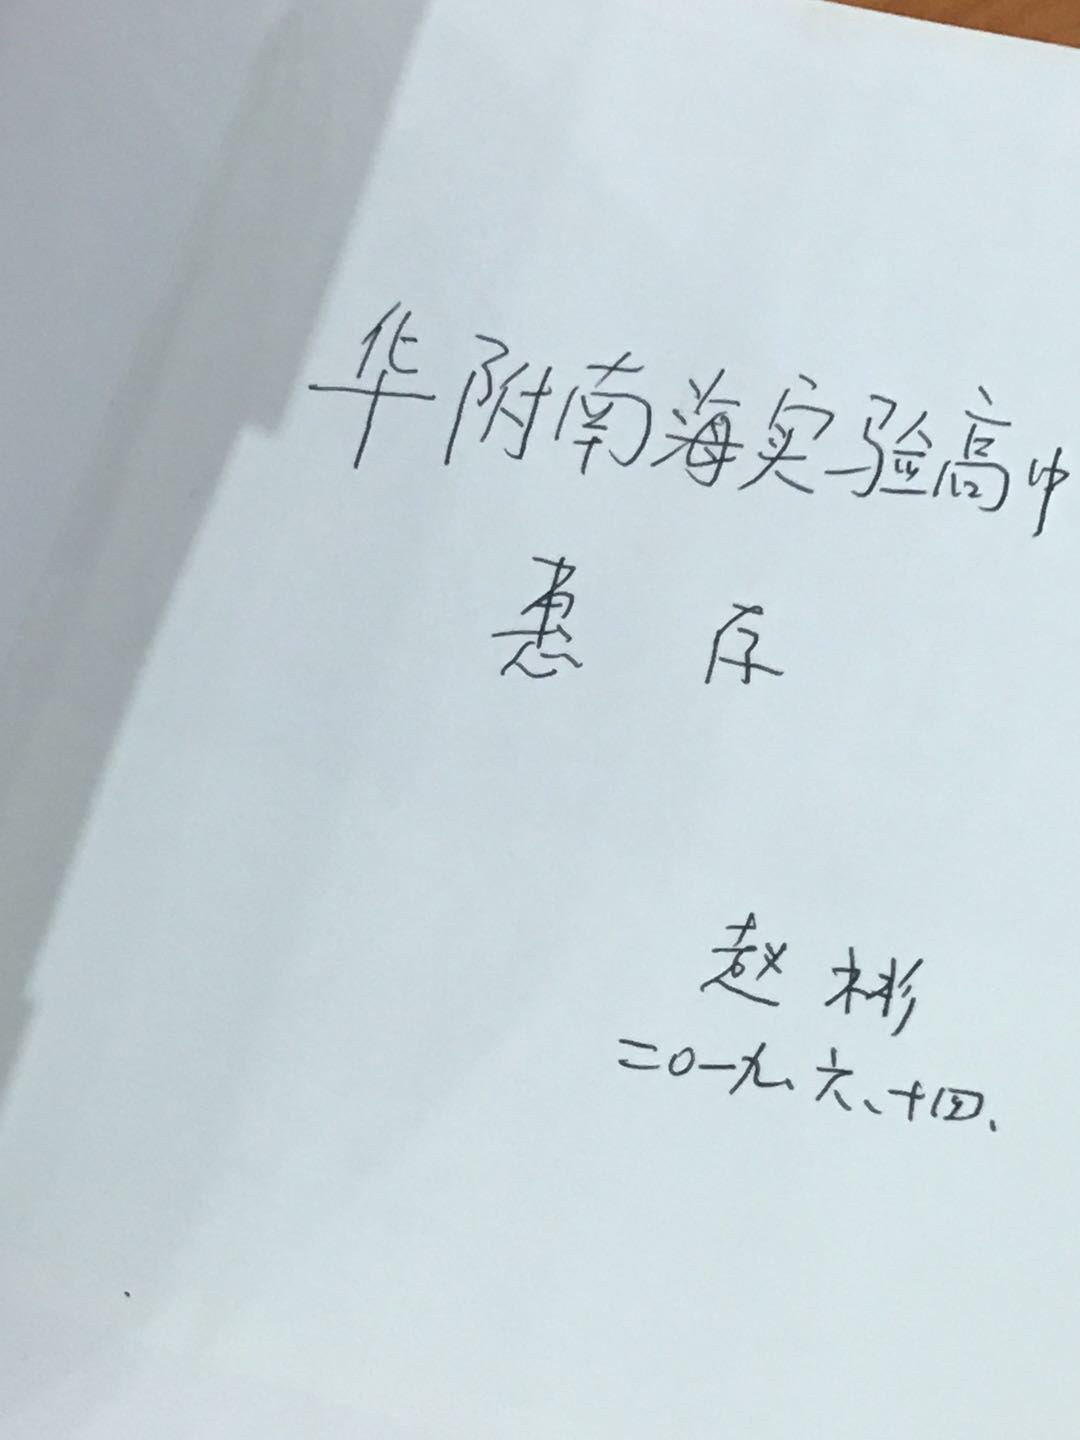 华附南海实验高中
惠存
赵彬
二〇一九、六、十四、